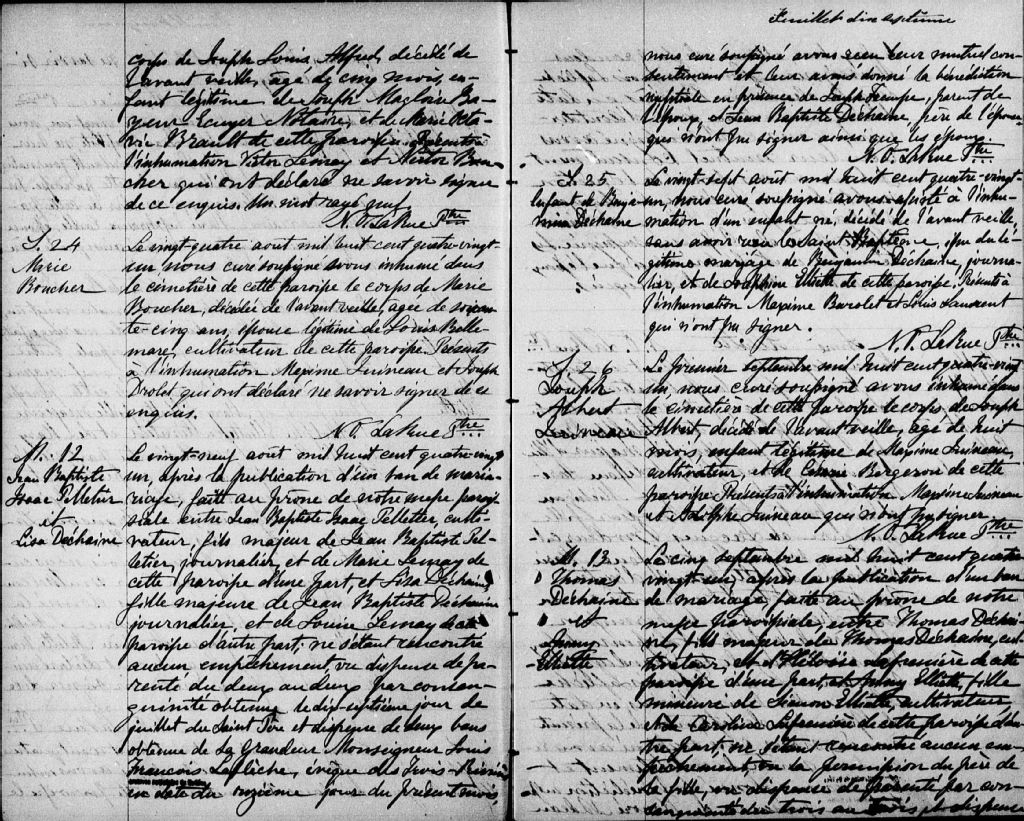 corps de Joseph Louis Alfred, décédé de
l'avant veille, âgé de cinq mois, en-
fant légitime de Joseph Magloire
Ecuyer Notaire, et de Marie
Brault de cette paroisse. Présents à
l'inhumation Victor Lemay et Nestor Bou-
cher qui ont déclaré ne savoir signer
de ce enquis. Un mot rayé nul
N. O. LaRue Ptre
S. 24
Marie
Boucher
Le vingt-quatre aout mil huit cent quatre-vingt-
un nous curé soussigné avons inhumé dans
le cimetière de cette paroisse le corps de Marie
Boucher, décédée de l'avant veille, agée de soixan-
te-cinq ans, épouse légitime de Louis Belle-
mare, cultivateur de cette paroisse. Présents
à l'inhumation Maxime Juineau et Joseph
Drolet qui ont déclaré ne savoir signer de ce
enquis.
N. O. LaRue Ptre
M. 12
Jean Baptiste
Isaac Pelletier
et
Lisa Dechaine
Le vingt-neuf août mil huit cent quatre-vingt
un, après la publication d'un ban de mari-
riage, faite au prône de notre messe parois-
siale entre Jean Baptiste Isaac Pelletier, culti-
vateur, fils majeur de Jean Baptiste Pel-
letier, journalier, et de Marie Lemay de
cette paroisse d'une part, et Lisa Dechaine,
fille majeure de Jean Baptiste Déchaine
journalier, et de Louise Lemay de cette
paroisse d'autre part; ne s'étant rencontré
aucun empêchement, vu dispense de pa-
renté du deux au deux par consan-
guinité obtenue le dix-septième jour de
juillet du Saint Père et dispense de deux bans
obtenue de Sa Grandeur Monseigneur Louis
François Laflèche, évêque des Trois-Rivières
en date du onzième jour du présent mois,
Feuillet dix septième
nous curé soussigné avons reçu leur mutuel con-
sentement et leur avons donné la bénédiction
nuptiale en présence de Joseph, parent de
l'époux, et Jean Baptiste Déchaine, père de l'épouse
qui n'ont pu signer ainsi que les époux.
N. O. LaRue Ptre
S. 25
Enfant de Benja-
min Dechaine
Le vingt-sept août mil huit cent quatre-vingt-
un, nous curé soussigné avons assisté à l'inhu-
mation d'un enfant né, décédé de l'avant veille,
sans avoir reçu le saint Baptême, issu du lé-
gitime mariage de Benjamin Déchaine, journa-
lier, et de Joséphine Elliotte de cette paroisse. Présents à
l'inhumation Maxime et Louis Laurent
qui n'ont pu signer.
N. O. LaRue Ptre
S. 26
Joseph
Albert
Juineau
Le premier septembre mil huit cent quatre-vingt
un, nous curé soussigné avons inhumé dans
le cimetière de cette paroisse le corps de Joseph
Albert, décédé de l'avant veille, agé de huit
mois, enfant légitime de Maxime Juineau,
cultivateur, et de Bergeron de cette
paroisse. Présents à l'inhumation Maxime Juineau
et Adolphe Juineau qui n'ont pu signer
N. O. LaRue Ptre
M. 13
Thomas
Dechaine
et
Elliotte
Le cinq septembre mil huit cent quatre
vingt-un, après la publication d'un ban
de mariage, faite au prône de notre
messe paroissiale, entre Thomas Déchai-
ne, fils majeur de Thomas Dechaine, cul-
tivateur, et d'Héloïse Lafrenière de cette
paroisse d'une part, et Elliotte, fille
mineure de Simeon Elliotte, cultivateur
et de Caroline Lafrenière de cette paroisse d'au-
tre part; ne s'étant rencontré aucun em-
pêchement, vu la permission du père de
la fille, vu dispense de parenté par con-
sanguinité du trois au trois et dispense